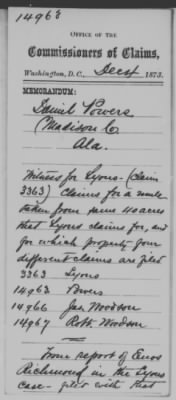 14963
OFFICE OF THE
Commissioners of Claims,
Washington, D.C., Dec 4 1873.
MEMORANDUM:
Daniel Powers
(Madison Co
Ala.
Witness for Lyons - (Claim
3363) Claims for a mule
taken from same 40 acres
that Lyons claims for, and
for which property four
different claims are filed
3363 Lyons
14963 Powers
14966 Jas. Woodson
14967 Robt. Woodson
From report of Enos
Richmond in the Lyons
Case - filed with that